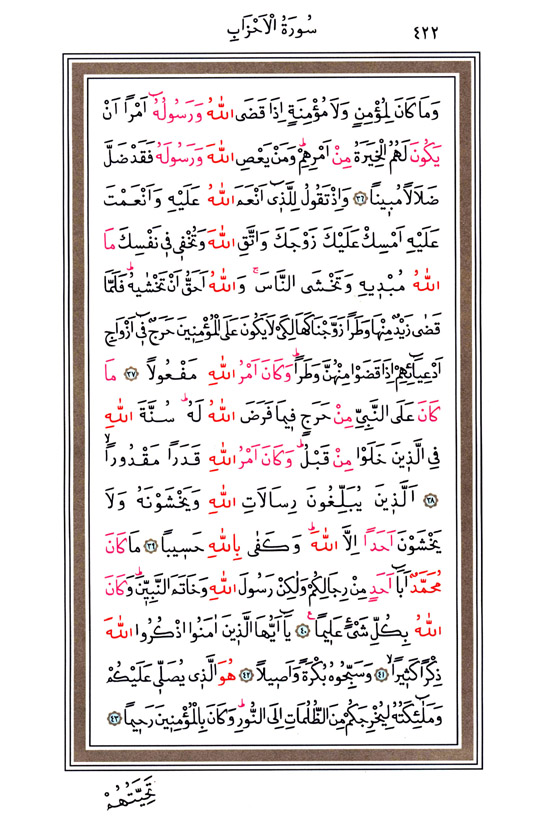 سُورَةُ الْاَحْزَابِ ٤٢٢
وَمَا كَانَ لِمُؤْمِنٍ وَلَا مُؤْمِنَةٍ اِذَا قَضَى اللّٰهُ وَرَسُولُهُٓ اَمْرًا اَنْ
يَكُونَ لَهُمُ الْخِيَرَةُ مِنْ اَمْرِهِمْۜ وَمَنْ يَعْصِ اللّٰهَ وَرَسُولَهُ فَقَدْ ضَلَّ
ضَلَالًا مُبٖينًا ﴿٣٦﴾ وَاِذْ تَقُولُ لِلَّذٖٓي اَنْعَمَ اللّٰهُ عَلَيْهِ وَاَنْعَمْتَ
عَلَيْهِ اَمْسِكْ عَلَيْكَ زَوْجَكَ وَاتَّقِ اللّٰهَ وَتُخْفٖي فٖي نَفْسِكَ مَا
اللّٰهُ مُبْدٖيهِ وَتَخْشَى النَّاسَۚ وَاللّٰهُ اَحَقُّ اَنْ تَخْشٰيهُۜ فَلَمَّا
قَضٰى زَيْدٌ مِنْهَا وَطَرًا زَوَّجْنَاكَهَا لِكَيْ لَا يَكُونَ عَلَى الْمُؤْمِنٖينَ حَرَجٌ فٖٓي اَزْوَاجِ
اَدْعِيَٓائِهِمْ اِذَا قَضَوْا مِنْهُنَّ وَطَرًاۜ وَكَانَ اَمْرُ اللّٰهِ مَفْعُولًا ﴿٣٧﴾ مَا
كَانَ عَلَى النَّبِيِّ مِنْ حَرَجٍ فٖيمَا فَرَضَ اللّٰهُ لَهُۜ سُنَّةَ اللّٰهِ
فِي الَّذٖينَ خَلَوْا مِنْ قَبْلُۜ وَكَانَ اَمْرُ اللّٰهِ قَدَرًا مَقْدُورًاۙ
﴿٣٨﴾ اَلَّذٖينَ يُبَلِّغُونَ رِسَالَاتِ اللّٰهِ وَيَخْشَوْنَهُ وَلَا
يَخْشَوْنَ اَحَدًا اِلَّا اللّٰهَۜ وَكَفٰى بِاللّٰهِ حَسٖيبًا ﴿٣٩﴾ مَا كَانَ
مُحَمَّدٌ اَبَٓا اَحَدٍ مِنْ رِجَالِكُمْ وَلٰكِنْ رَسُولَ اللّٰهِ وَخَاتَمَ النَّبِيّٖنَۜ وَكَانَ
اللّٰهُ بِكُلِّ شَيْءٍ عَلٖيمًاۚ ﴿٤٠﴾ يَٓا اَيُّهَا الَّذٖينَ اٰمَنُوا اذْكُرُوا اللّٰهَ
ذِكْرًا كَثٖيرًاۙ ﴿٤١﴾ وَسَبِّحُوهُ بُكْرَةً وَاَصٖيلًا ﴿٤٢﴾ هُوَ الَّذٖي يُصَلّٖي عَلَيْكُمْ
وَمَلٰٓئِكَتُهُ لِيُخْرِجَكُمْ مِنَ الظُّلُمَاتِ اِلَى النُّورِۜ وَكَانَ بِالْمُؤْمِنٖينَ رَحٖيمًا ﴿٤٣﴾
تَحِيَّتُهُمْ